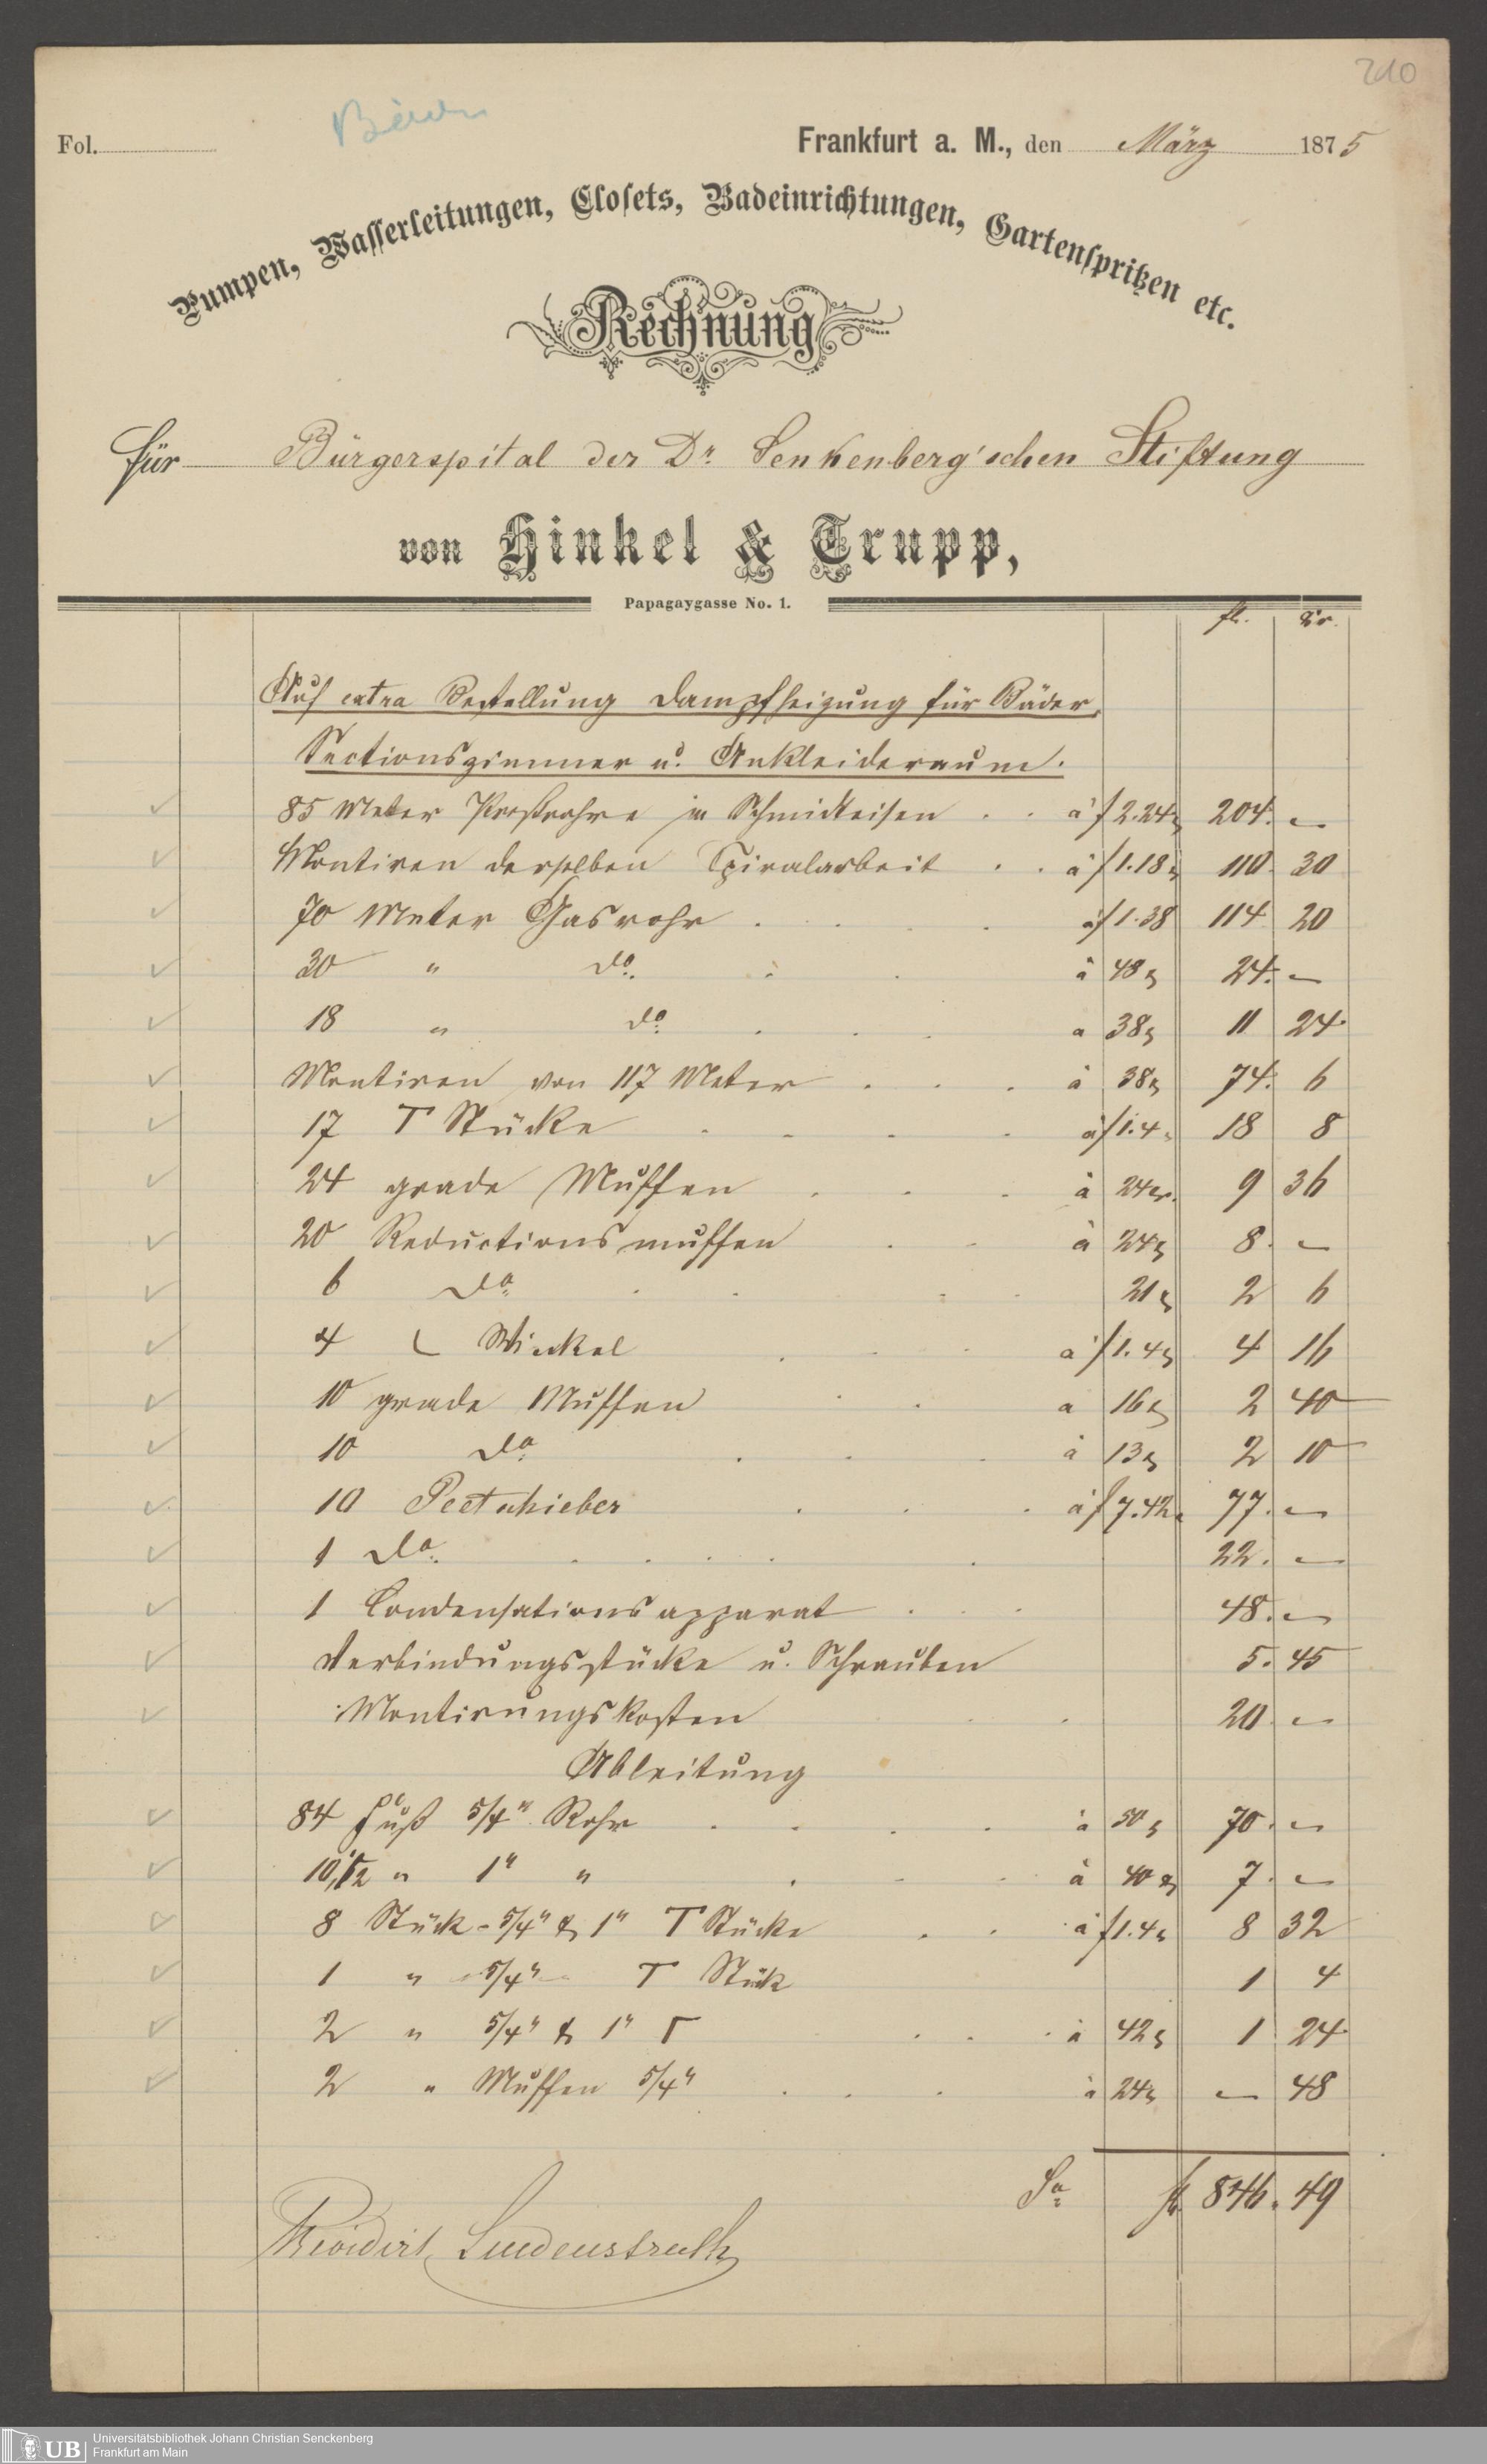 210
Fol.
Frankfurt a. M., den März 1875
Pumpen, Wasserleitungen, Closets, Badeinrichtungen, Gartenspritzen etc.
Rechnung
für Bürgerspital der Dr. Senkenberg'schen Stiftung
von Hinkel & Trupp,
Papagaygasse No. 1.
fl. Kr.
Auf extra Bestellung Dampfheizung für Bäder,
Sectionszimmer u. Ankleideraum.
85 Meter Preßrohre in Schmideisen . . à f 2.24 204. —
Montiren derselben Spiralarbeit . . à f 1.18 110. 30
70 Meter Gasrohr . . . . à f 1.38 114 20
30 " do. . . à 48 24. —
18 " do. . . . a 38 11 24
Montiren von 117 Meter . . . à 38 74. 6
17 T Stücke . . . . à f 1.4 18 8
24 grade Muffen . . . à 24 kr. 9 36
20 Reductionsmuffen . . à 24 8. —
6 do. . . . . 21 2 6
4 L Winkel . . . à f 1.4 4 16
10 grade Muffen . . a 16 2 40
10 do. . . . à 13 2 10
10 Peetschieber . . . à f 7.42 77. —
1 do. . . . . . 22. —
1 Condensationsapparat . . . 48. —
Verbindungsstücke u. Schrauben 5. 45
Montirungskosten . . 20. —
Ableitung
84 Fuß 5/4" Rohr . . . . à 50 70. —
10,1/2 " 1" " . . . à 40 7. —
8 Stück - 5/4" & 1" T Stücke . . à f 1.4 8 32
1 " 5/4" T Stück 1 4
2 " 5/4" & 1" Γ . . . à 42 1 24
2 " Muffen 5/4" . . . à 24 — 48
Sa. fl. 846. 49
Revidirt Lindenstruth
Universitätsbibliothek Johann Christian Senckenberg
UB
Frankfurt am Main